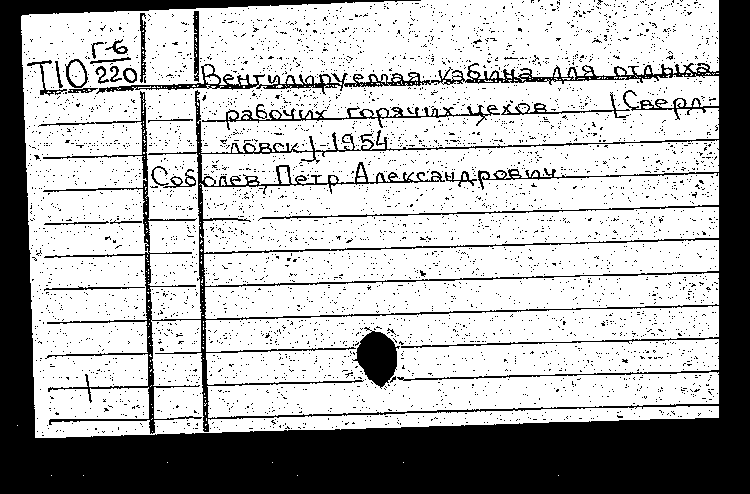 Т10 Г-6
220
Вентилируемая кабина для отдыха
рабочих горячих цехов [Сверд-
ловск], 1954
Соболев, Петр Александрович